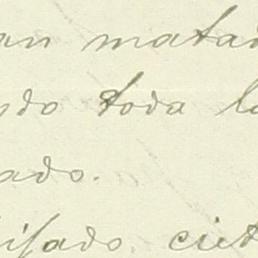 an matad
ndo toda la
ado.
isado. ciet